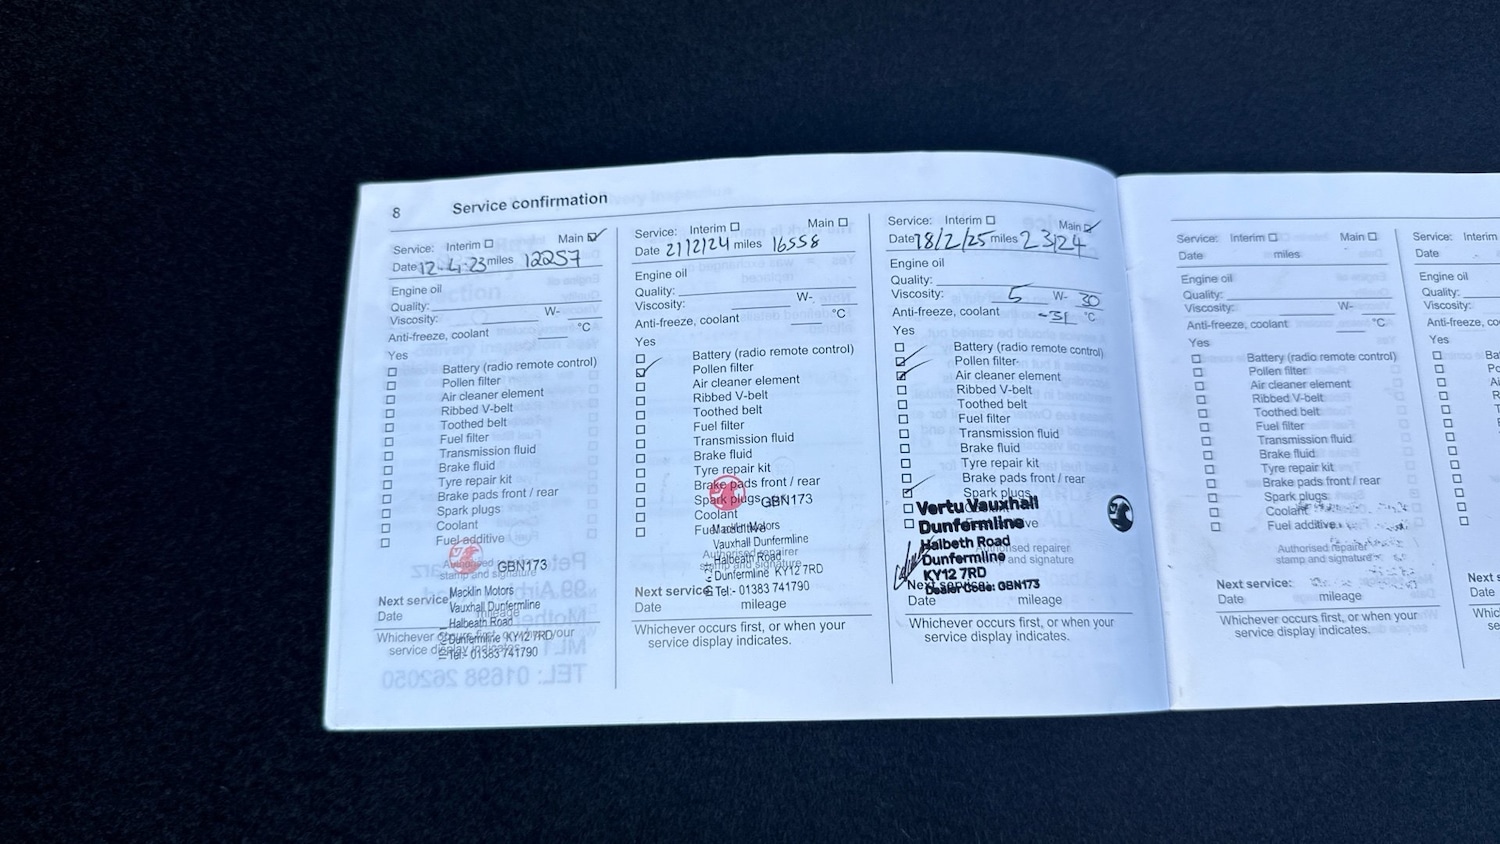 8 Service confirmation
Service: Interim ☐ Main ☑
Date 12-4-23 miles 12257
Engine oil
Quality:
Viscosity: W-
Anti-freeze, coolant °C
Yes
☐ Battery (radio remote control)
☐ Pollen filter
☐ Air cleaner element
☐ Ribbed V-belt
☐ Toothed belt
☐ Fuel filter
☐ Transmission fluid
☐ Brake fluid
☐ Tyre repair kit
☐ Brake pads front / rear
☐ Spark plugs
☐ Coolant
☐ Fuel additive
Authorised repairer
stamp and signature
GBN173
Macklin Motors
Vauxhall Dunfermline
Halbeath Road
Dunfermline KY12 7RD
Tel:- 01383 741790
Next service:
Date mileage
Whichever occurs first, or when your
service display indicates.
Service: Interim ☐ Main ☐
Date 21/2/24 miles 16558
Engine oil
Quality:
Viscosity: W-
Anti-freeze, coolant °C
Yes
☐ Battery (radio remote control)
☑ Pollen filter
☐ Air cleaner element
☐ Ribbed V-belt
☐ Toothed belt
☐ Fuel filter
☐ Transmission fluid
☐ Brake fluid
☐ Tyre repair kit
☐ Brake pads front / rear
☐ Spark plugs
☐ Coolant
☐ Fuel additive
GBN173
Macklin Motors
Vauxhall Dunfermline
Halbeath Road
Dunfermline KY12 7RD
Tel:- 01383 741790
Authorised repairer
stamp and signature
Next service:
Date mileage
Whichever occurs first, or when your
service display indicates.
Service: Interim ☐ Main ☑
Date 18/2/25 miles 23124
Engine oil
Quality:
Viscosity: 5 W- 30
Anti-freeze, coolant -31 °C
Yes
☐ Battery (radio remote control)
☑ Pollen filter
☑ Air cleaner element
☐ Ribbed V-belt
☐ Toothed belt
☐ Fuel filter
☐ Transmission fluid
☐ Brake fluid
☐ Tyre repair kit
☐ Brake pads front / rear
☑ Spark plugs
Vertu Vauxhall
Dunfermline
Halbeth Road
Dunfermline
KY12 7RD
Dealer Code: GBN173
Authorised repairer
stamp and signature
Next service:
Date mileage
Whichever occurs first, or when your
service display indicates.
Service: Interim ☐ Main ☐
Date miles
Engine oil
Quality:
Viscosity: W-
Anti-freeze, coolant °C
Yes
☐ Battery (radio remote control)
☐ Pollen filter
☐ Air cleaner element
☐ Ribbed V-belt
☐ Toothed belt
☐ Fuel filter
☐ Transmission fluid
☐ Brake fluid
☐ Tyre repair kit
☐ Brake pads front / rear
☐ Spark plugs
☐ Coolant
☐ Fuel additive
Authorised repairer
stamp and signature
Next service:
Date mileage
Whichever occurs first, or when your
service display indicates.
Service: Interim
Date
Engine oil
Quality:
Viscosity:
Anti-freeze,
Yes
Next
Date